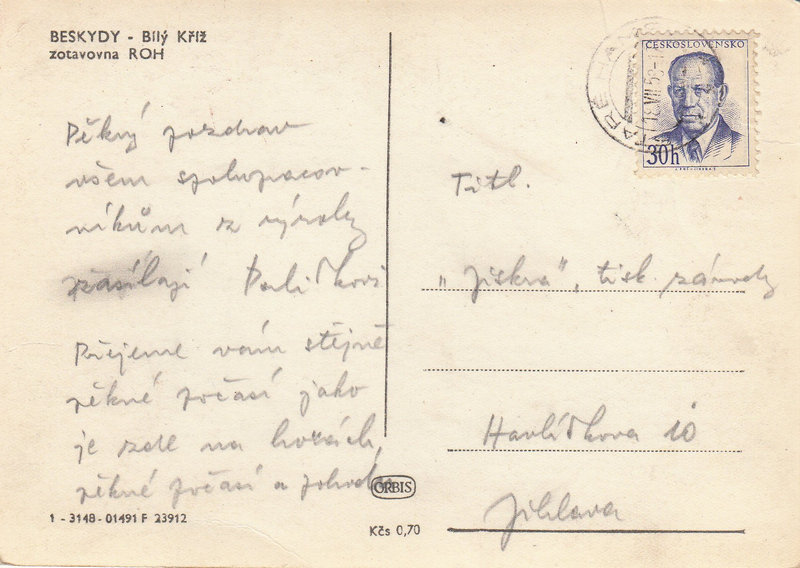 BESKYDY - Bílý Kříž
zotavovna ROH
Pěkný pozdrav
všem spolupracov-
níkům z výroby
zasílají Pavlíčkovi
Přejeme vám stejně
pěkné počasí jako
je zde na horách,
pěkné počasí a pohodu
ORBIS
1 - 3148 - 01491 F 23912
Kčs 0,70
ČESKOSLOVENSKO
30h
VII 58
Titl.
„Jiskra", tisk. závody
Havlíčkova 10
Jihlava